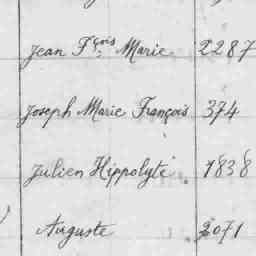 Jean Fçois Marie 2287
Joseph Marie François 374
Julien Hippolyte 1838
Auguste 2071